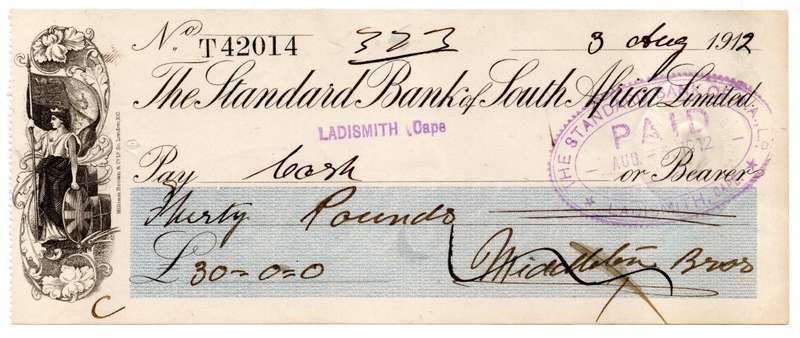 No T42014 323 3 Aug 1912
The Standard Bank of South Africa Limited.
LADISMITH Cape
Pay Cash or Bearer
Thirty Pounds
£ 30=0=0
Middleton Bros
C
THE STANDARD BANK OF S.A. LD.
PAID
AUG 1912
LADISMITH, CAPE